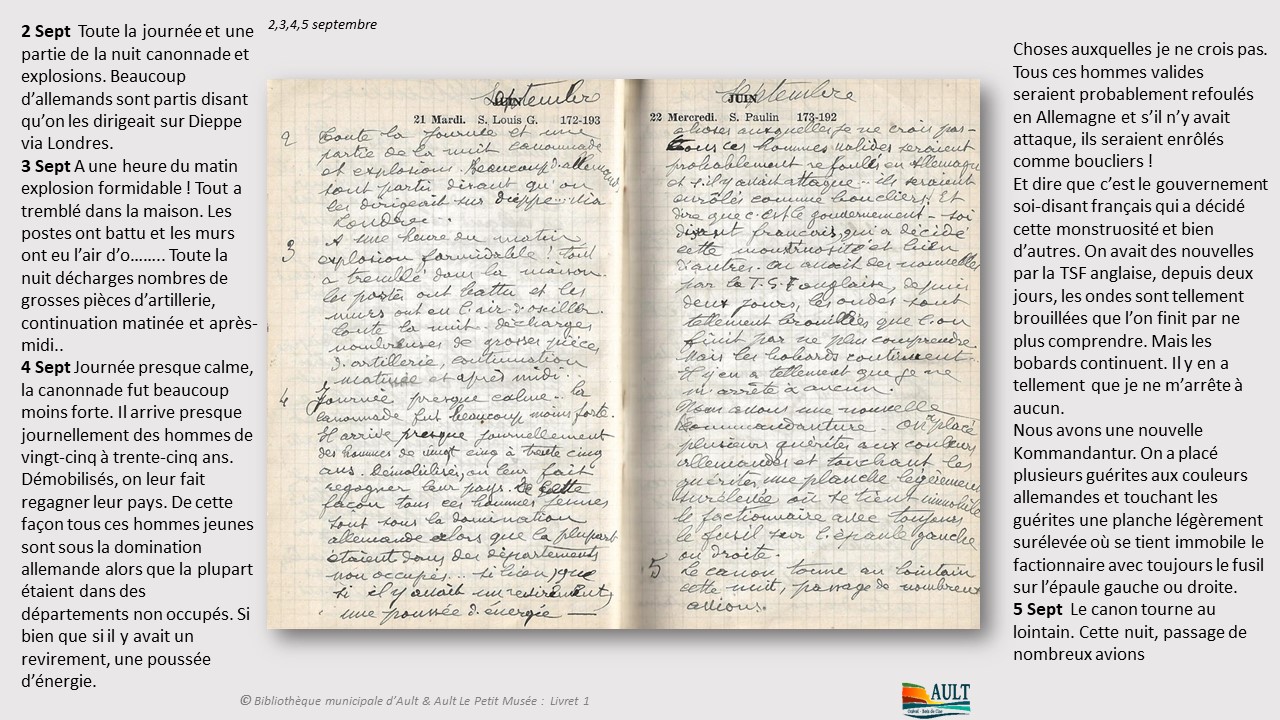 2,3,4,5 septembre
2 Sept Toute la journée et une
partie de la nuit canonnade et
explosions. Beaucoup
d’allemands sont partis disant
qu’on les dirigeait sur Dieppe
via Londres.
3 Sept A une heure du matin
explosion formidable ! Tout a
tremblé dans la maison. Les
postes ont battu et les murs
ont eu l’air d’o…….. Toute la
nuit décharges nombres de
grosses pièces d’artillerie,
continuation matinée et après-
midi..
4 Sept Journée presque calme,
la canonnade fut beaucoup
moins forte. Il arrive presque
journellement des hommes de
vingt-cinq à trente-cinq ans.
Démobilisés, on leur fait
regagner leur pays. De cette
façon tous ces hommes jeunes
sont sous la domination
allemande alors que la plupart
étaient dans des
départements non occupés. Si
bien que si il y avait un
revirement, une poussée
d’énergie.
Septembre
JUIN
21 Mardi. S. Louis G. 172-193
2 Toute la journée et une
partie de la nuit canonnade
et explosions. Beaucoup d'allemands
sont partis disant qu'on
les dirigeait sur Dieppe... via
Londres..
3 A une heure du matin
explosion formidable ! tout
a tremblé dans la maison.
les portes ont battu et les
murs ont eu l'air d'osciller.
toute la nuit.. décharges
nombreuses de grosses pièces
d'artillerie, continuation
matinée et après midi.
4 Journée presque calme.. la
canonnade fut beaucoup moins forte.
Il arrive presque journellement
des hommes de vingt cinq à trente cinq
ans. Démobilisés, on leur fait
regagner leur pays. De cette
façon tous ces hommes jeunes
sont sous la domination
allemande alors que la plupart
étaient dans des départements
non occupés... Si bien que
si il y avait un revirement,
une poussée d'énergie —
Septembre
JUIN
22 Mercredi. S. Paulin 173-192
choses auxquelles je ne crois pas-
Tous ces hommes valides seraient
probablement refoulés en Allemagne
et s'il y avait attaque.. ils seraient
enrôlés comme boucliers! Et
dire que c'est le gouvernement - soi
disant français, qui a décidé
cette monstruosité et bien
d'autres. On avait des nouvelles
par la T.S.F. anglaise, depuis
deux jours, les ondes sont
tellement brouillées que l'on
finit par ne plus comprendre.
Mais les bobards continuent.
Il y en a tellement que je ne
m'arrête à aucun.
Nous avons une nouvelle
Kommandanture. On a placé
plusieurs guérites aux couleurs
allemandes et touchant les
guérites une planche légèrement
surélevée où se tient immobile
le factionnaire avec toujours
le fusil sur l'épaule gauche
ou droite.
5 Le canon tonne au lointain
cette nuit, passage de nombreux
avions.
Choses auxquelles je ne crois pas.
Tous ces hommes valides
seraient probablement refoulés
en Allemagne et s’il n’y avait
attaque, ils seraient enrôlés
comme boucliers !
Et dire que c’est le gouvernement
soi-disant français qui a décidé
cette monstruosité et bien
d’autres. On avait des nouvelles
par la TSF anglaise, depuis deux
jours, les ondes sont tellement
brouillées que l’on finit par ne
plus comprendre. Mais les
bobards continuent. Il y en a
tellement que je ne m’arrête à
aucun.
Nous avons une nouvelle
Kommandantur. On a placé
plusieurs guérites aux couleurs
allemandes et touchant les
guérites une planche légèrement
surélevée où se tient immobile le
factionnaire avec toujours le fusil
sur l’épaule gauche ou droite.
5 Sept Le canon tourne au
lointain. Cette nuit, passage de
nombreux avions
© Bibliothèque municipale d’Ault & Ault Le Petit Musée : Livret 1
AULT